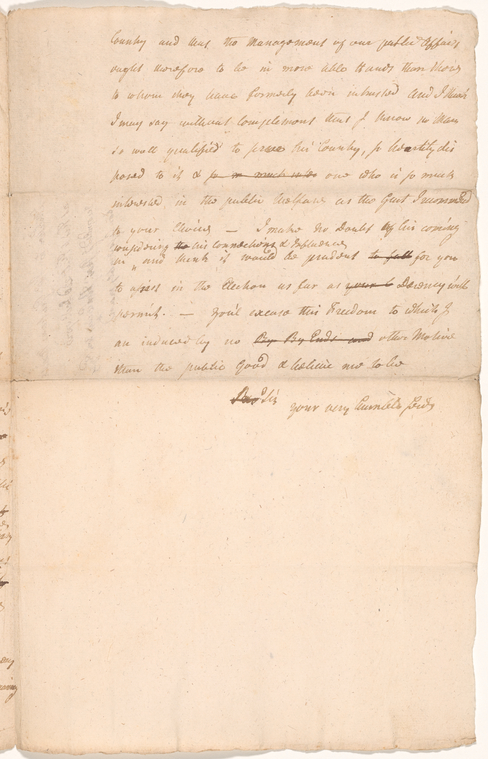 Country and that the Management of our public Affairs
ought therefore to be in more able Hands than those
to whom they have formerly been intrusted And I think
I may say without Complement that I know no Man
so well qualified to serve his Country, so heartily dis
posed to it & so in much so one who is so much
interested in the public Welfare as the Gent I recommend
to your Choice — I make no Doubt of his coming
considering the his Connections & Influence
in and think it would be prudent to for you
to assist in the Election as far as your Decency will
permit. — You'l excuse this Freedom to which I
am induced by no By By Ends and other Motive
than the public Good & believe me to be
Sir
your very humble Servt